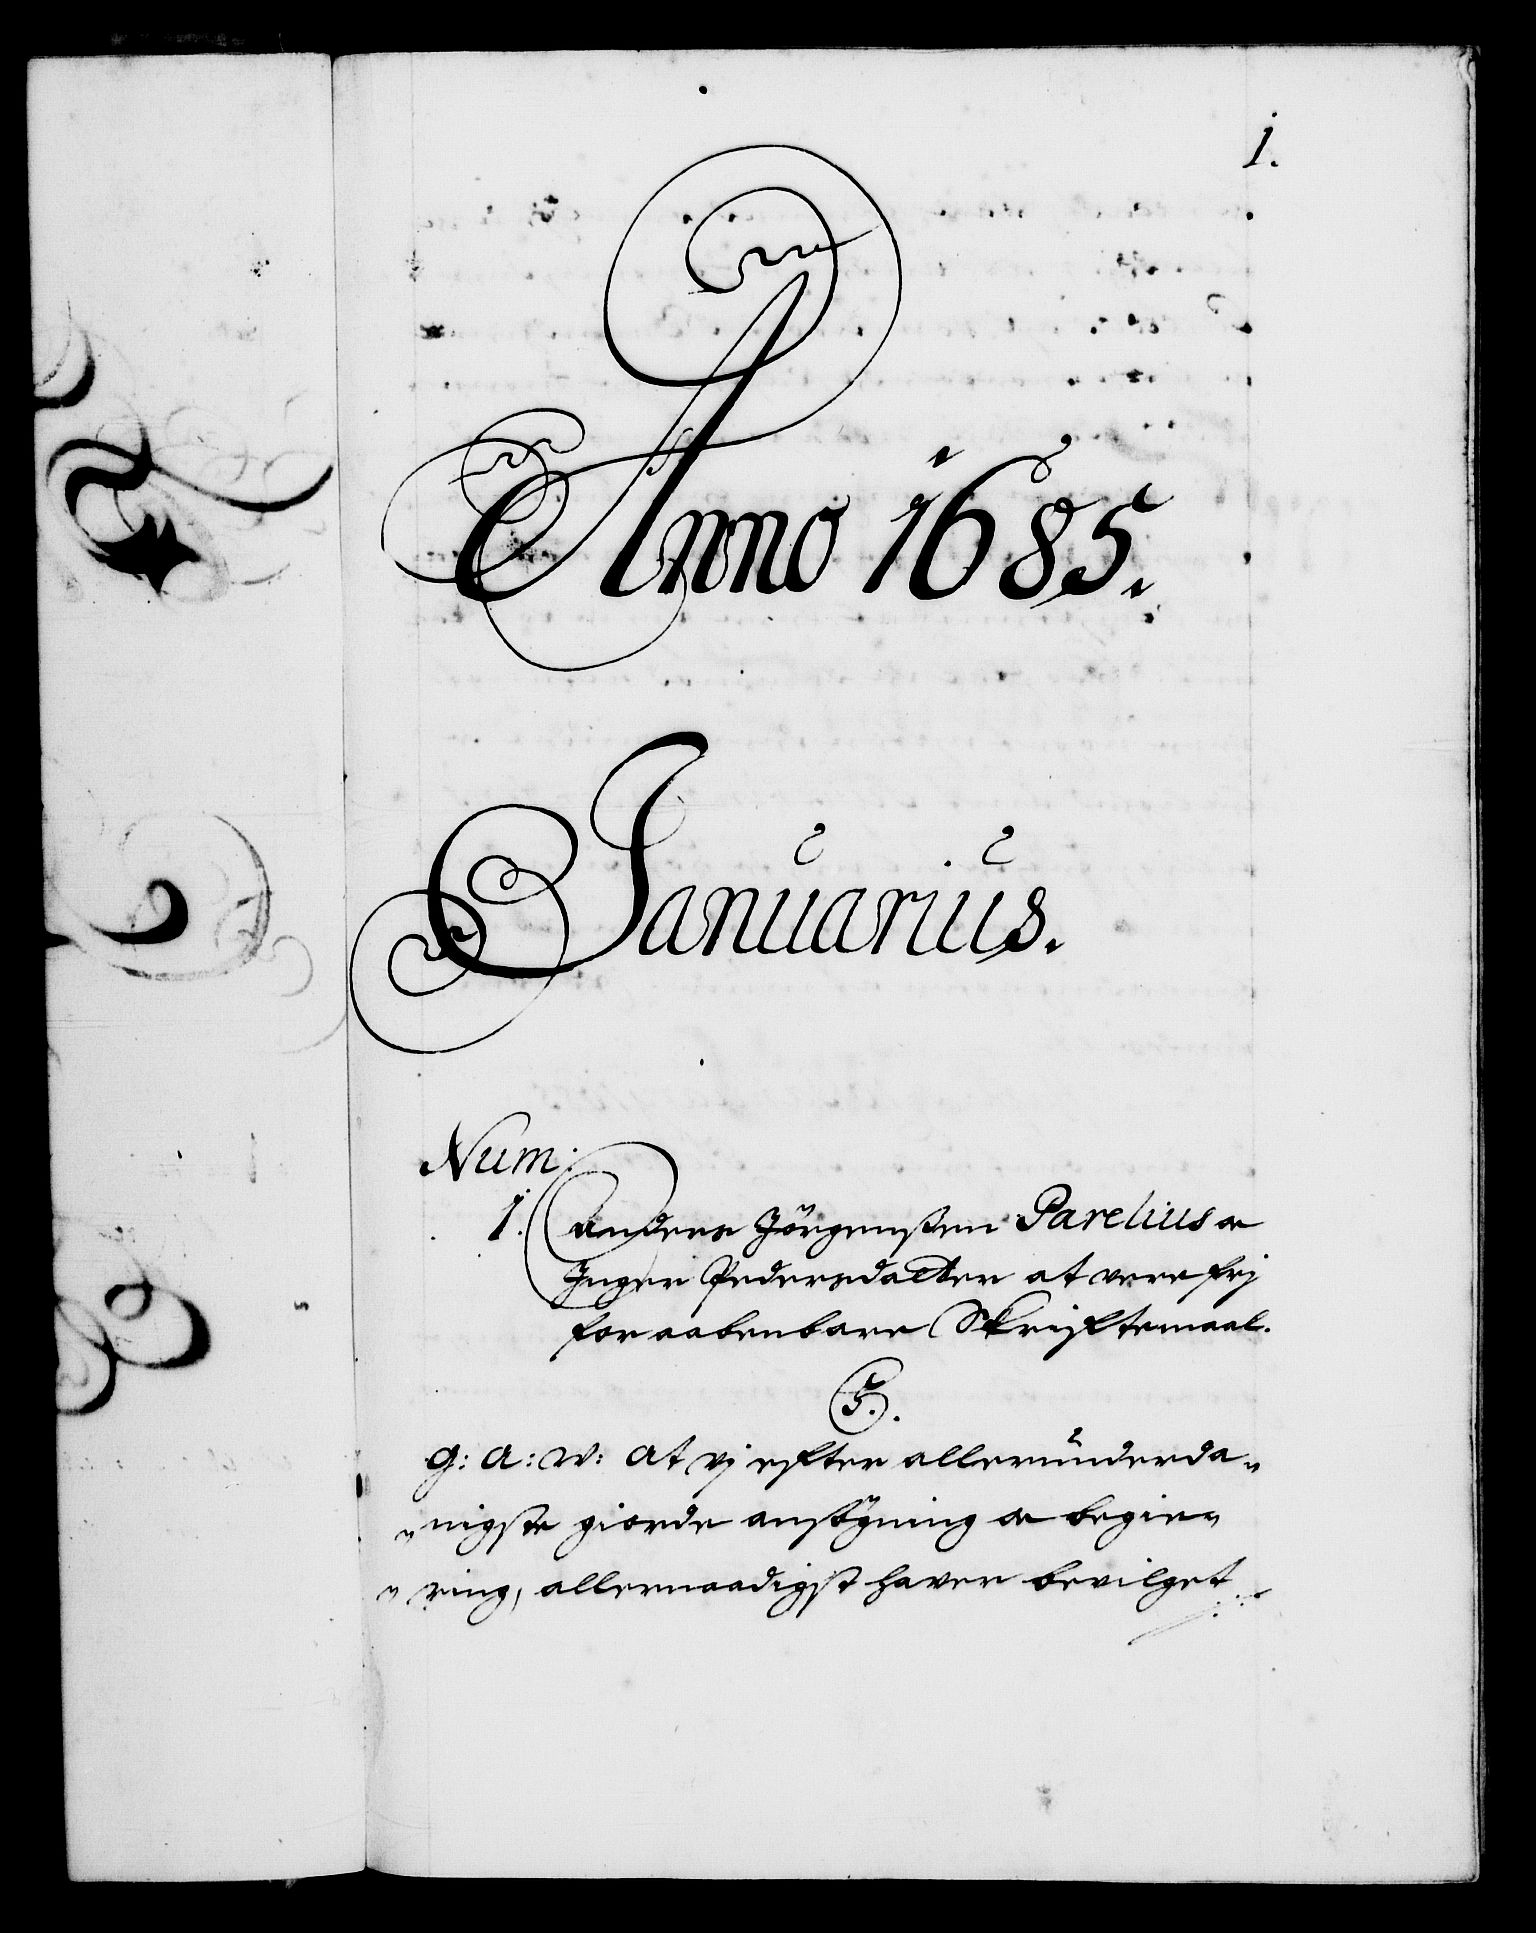 1.
Anno 1685.
Januarius.
Num:
1. Anders Jörgenßen Parelius oc
Inger Pedersdatter at vere frj
for aabenbare Skriftemaal.
C5.
G: A: W: At vj efter allerunderda„
„nigste giorde ansögning oc begie„
„ring, allernaadigst haver bevilget